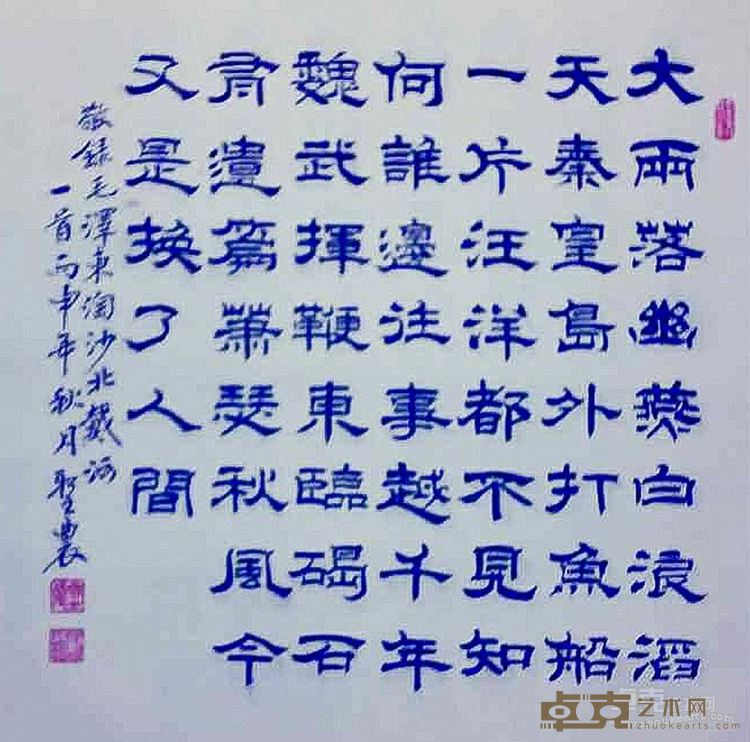 大雨落幽燕白浪滔
天秦皇島外打魚船
一片汪洋都不見知
何誰邊往事越千年
魏武揮鞭東臨碣石
有遺篇蕭瑟秋風今
又是換了人間
敬錄毛澤東淘沙北戴河
一首丙申年秋月聖農
卓克艺术网
zhuokearts.com